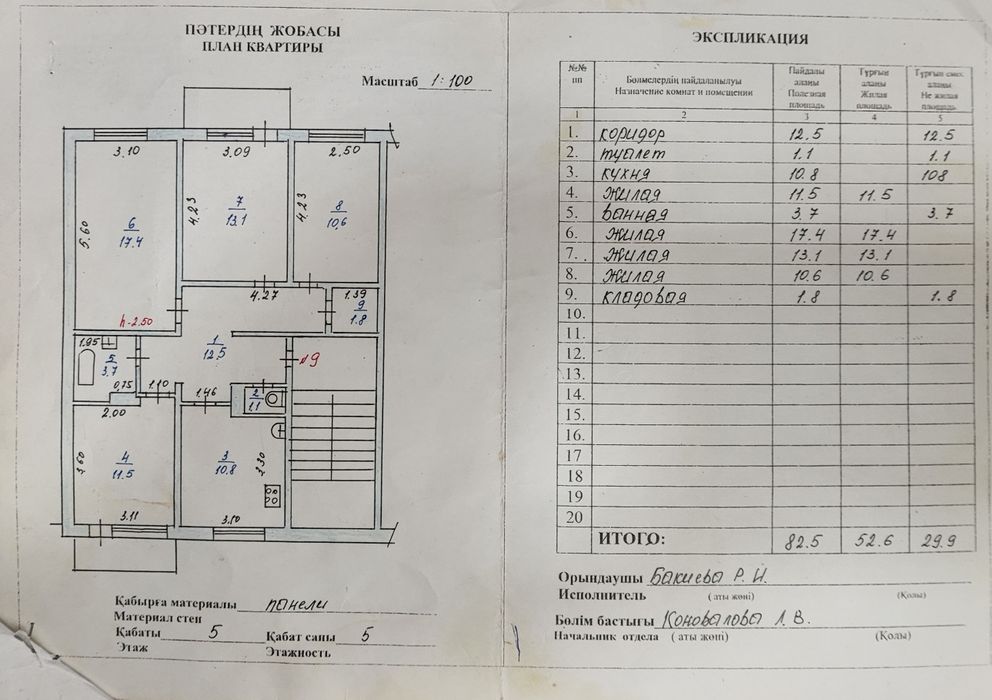 ПӘТЕРДІҢ ЖОБАСЫ
ПЛАН КВАРТИРЫ
Масштаб 1:100
3.10
3.09
2.50
5.60
6
17.4
4.23
7
13.1
4.23
8
10.6
4.27
1.39
9
1.8
h-2.50
1
12.5
№9
1.95
5
3.7
0.75
1.10
1.46
2
1.1
2.00
3.60
4
11.5
3
10.8
3.30
3.11
3.10
Қабырға материалы панели
Материал стен
Қабаты 5 Қабат саны 5
Этаж Этажность
ЭКСПЛИКАЦИЯ
№№ пп
Бөлмелердің пайдаланылуы
Назначение комнат и помещении
Пайдалы аланы
Полезная площадь
Тұрғын аланы
Жилая площадь
Тұрғын емес аланы
Не жилая площадь
1 2 3 4 5
1. коридор 12.5 12.5
2. туалет 1.1 1.1
3. кухня 10.8 108
4. жилая 11.5 11.5
5. ванная 3.7 3.7
6. жилая 17.4 17.4
7. жилая 13.1 13.1
8. жилая 10.6 10.6
9. кладовая 1.8 1.8
10.
11.
12.
13.
14.
15.
16.
17
18
19
20
ИТОГО: 82.5 52.6 29.9
Орындаушы Бакиева Р. И.
Исполнитель (аты жөні) (Қолы)
Бөлім бастығы Коновалова Л. В.
Начальник отдела (аты жөні) (Қолы)